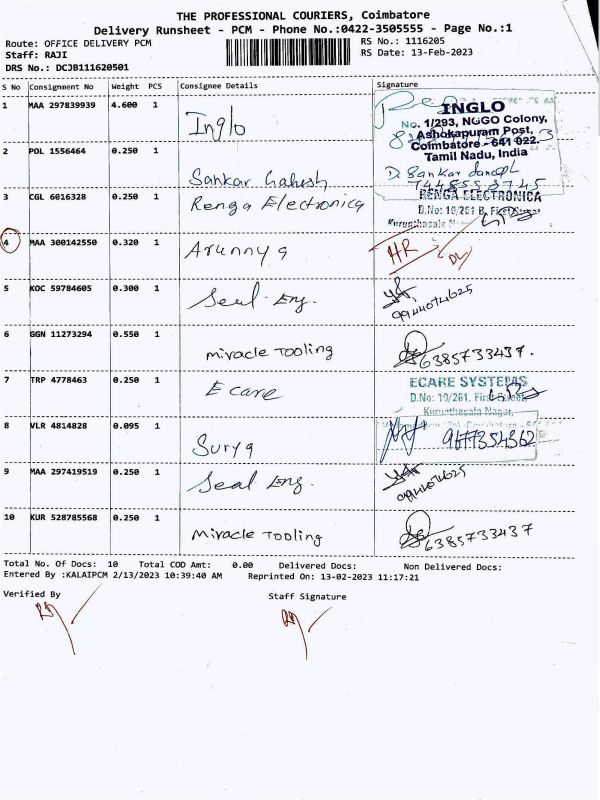 THE PROFESSIONAL COURIERS, Coimbatore
Delivery Runsheet - PCM - Phone No.:0422-3505555 - Page No.:1
Route: OFFICE DELIVERY PCM
RS No.: 1116205
Staff: RAJI
RS Date: 13-Feb-2023
DRS No.: DCJB111620501
S No Consignment No Weight PCS Consignee Details Signature
1 MAA 297839939 4.600 1 Inglo
INGLO
No. 1/293, NGGO Colony,
Ashokapuram Post,
Coimbatore - 641 022.
Tamil Nadu, India
2 POL 1556464 0.250 1 Sankar Gahesh
D. Sankar
3 CGL 6016328 0.250 1 Renga Electronica
RENGA ELECTRONICA
D.No: 10/261 B, First Street
4 MAA 300142550 0.320 1 Arunnya
HR
DL
5 KOC 59784605 0.300 1 Seal Eng.
9944074625
6 GGN 11273294 0.550 1 miracle Tooling
6385733437.
7 TRP 4778463 0.250 1 E care
ECARE SYSTEMS
D.No: 10/261, First Street,
Kurunthasala Nagar,
8 VLR 4814828 0.095 1 Surya
9677354362
9 MAA 297419519 0.250 1 Seal Eng.
9944074625
10 KUR 528785568 0.250 1 miracle Tooling
6385733437
Total No. Of Docs: 10 Total COD Amt: 0.00 Delivered Docs: Non Delivered Docs:
Entered By :KALAIPCM 2/13/2023 10:39:40 AM Reprinted On: 13-02-2023 11:17:21
Verified By Staff Signature